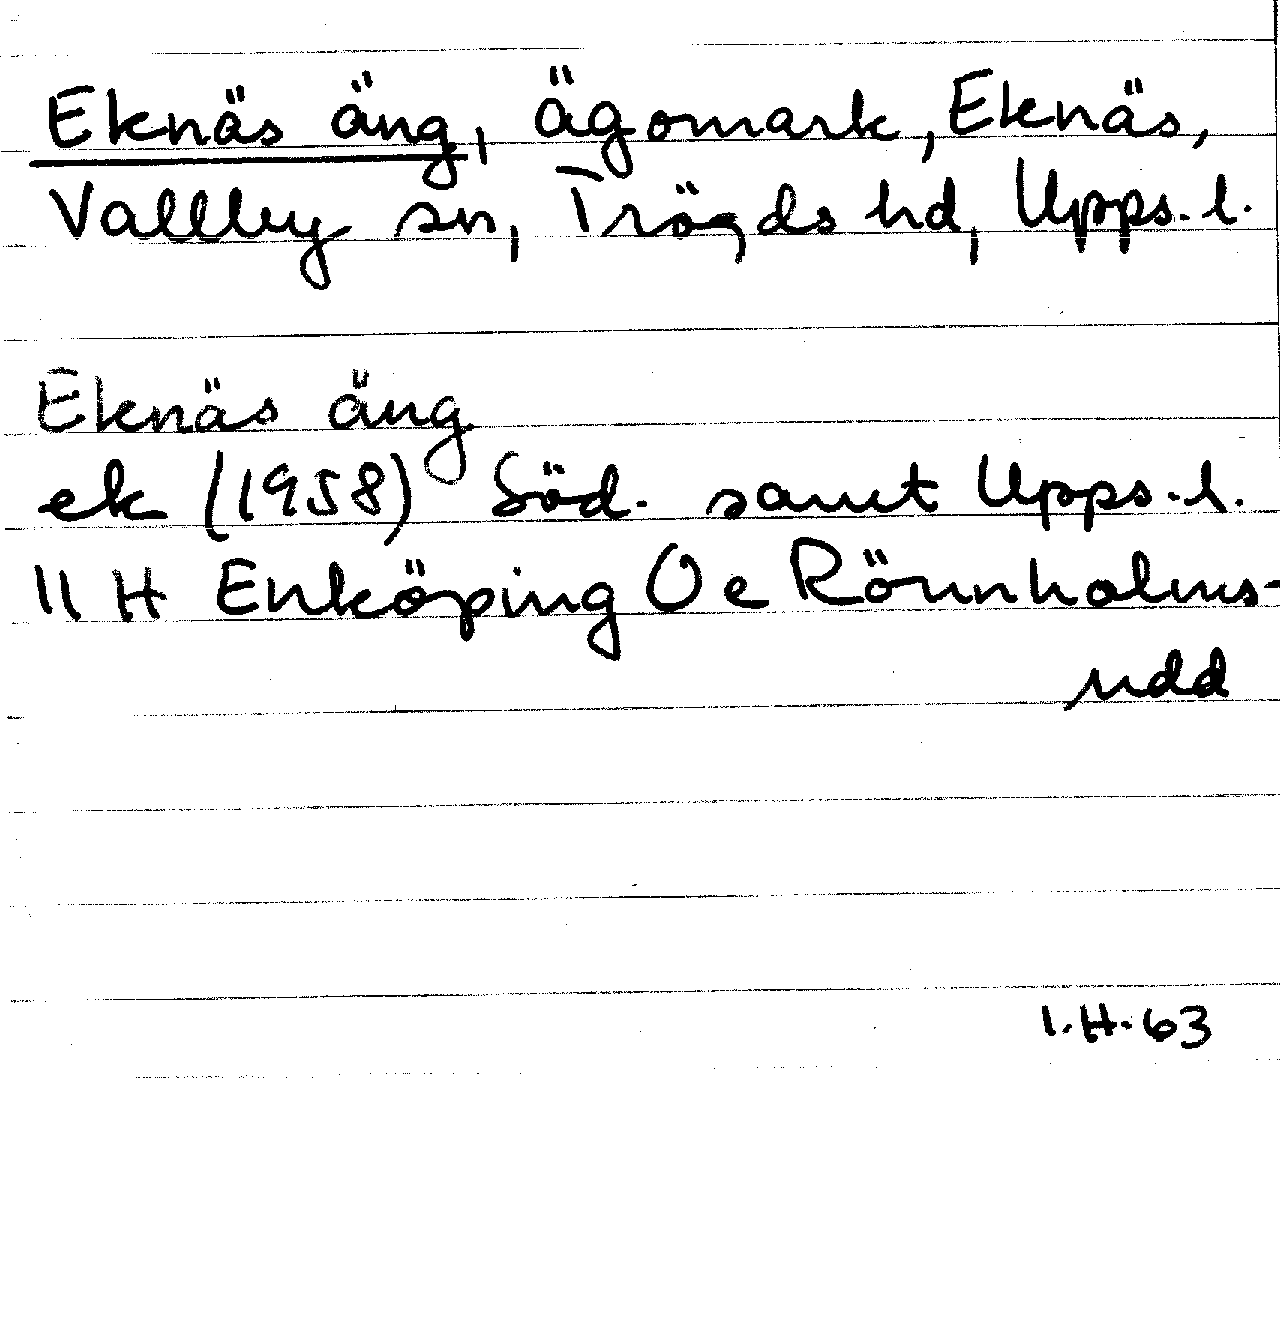 Eknäs äng, ägomark, Eknäs,
Vallby sn, Trögds hd, Upps. l.
Eknäs äng
ek (1958) Söd. samt Upps. l.
11 H Enköping Oe Rönnholms-
udd
I.H. 63